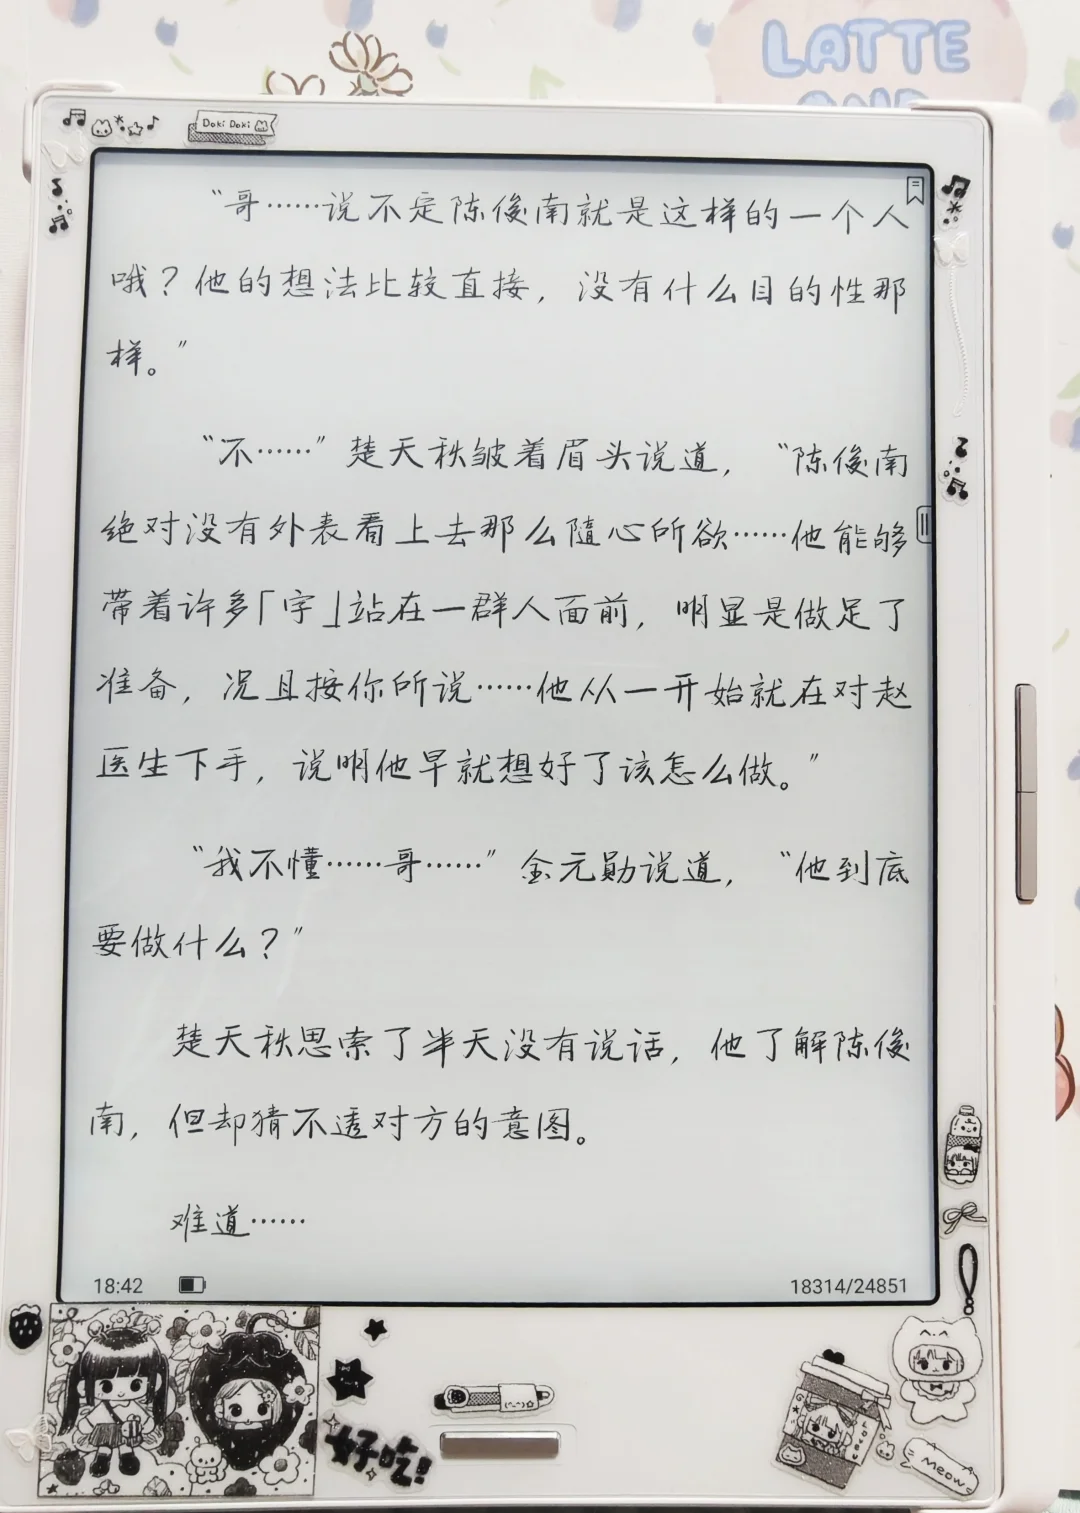 LATTE
Doki Doki
“哥……说不定陈俊南就是这样的一个人
哦？他的想法比较直接，没有什么目的性那
样。”
“不……”楚天秋皱着眉头说道，“陈俊南
绝对没有外表看上去那么随心所欲……他能够
带着许多「字」站在一群人面前，明显是做足了
准备，况且按你所说……他从一开始就在对赵
医生下手，说明他早就想好了该怎么做。”
“我不懂……哥……”金元勋说道，“他到底
要做什么？”
楚天秋思索了半天没有说话，他了解陈俊
南，但却猜不透对方的意图。
难道……
18:42
18314/24851
好吃!
Meow